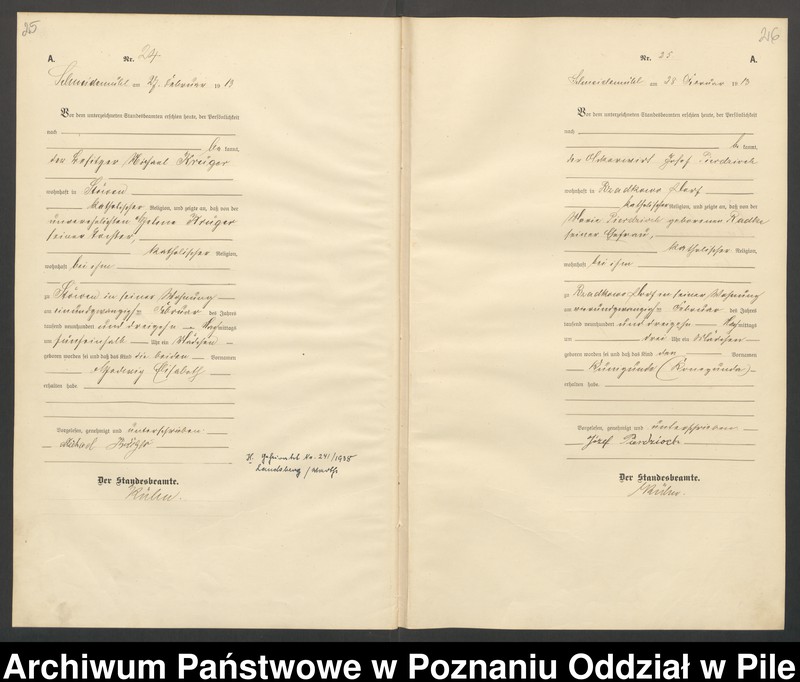 25
A. Nr. 24.
Schneidemühl am 27. Februar 19 13
Vor dem unterzeichneten Standesbeamten erschien heute, der Persönlichkeit
nach
be kannt,
der Besitzer Michael Krüger
wohnhaft in Stöwen
katholischer Religion, und zeigte an, daß von der
unverehelichten Helene Krüger
seiner Tochter,
katholischer Religion,
wohnhaft bei ihm
zu Stöwen in seiner Wohnung
am einundzwanzigsten Februar des Jahres
tausend neunhundert und dreizehn Nachmittags
um fünfeinhalb Uhr ein Mädchen
geboren worden sei und daß das Kind die beiden Vornamen
Hedwig Elisabeth
erhalten habe.
Vorgelesen, genehmigt und unterschrieben
Michael
H. geheiratet No. 241/1938
Landsberg / Warthe
Der Standesbeamte.
26
Nr. 25 A.
Schneidemühl am 28 Februar 19 13
Vor dem unterzeichneten Standesbeamten erschien heute, der Persönlichkeit
nach
be kannt,
der Josef Pierdzioch
wohnhaft in Dorf
katholischer Religion, und zeigte an, daß von der
Marie Pierdzioch geborenen
seiner Ehefrau,
katholischer Religion,
wohnhaft bei ihm
zu Dorf in seiner Wohnung
am vierundzwanzigsten Februar des Jahres
tausend neunhundert und dreizehn Nachmittags
um drei Uhr ein Mädchen
geboren worden sei und daß das Kind den Vornamen
Kunigunde
erhalten habe.
Vorgelesen, genehmigt und unterschrieben
Józef Pierdzioch
Der Standesbeamte.
Archiwum Państwowe w Poznaniu Oddział w Pile